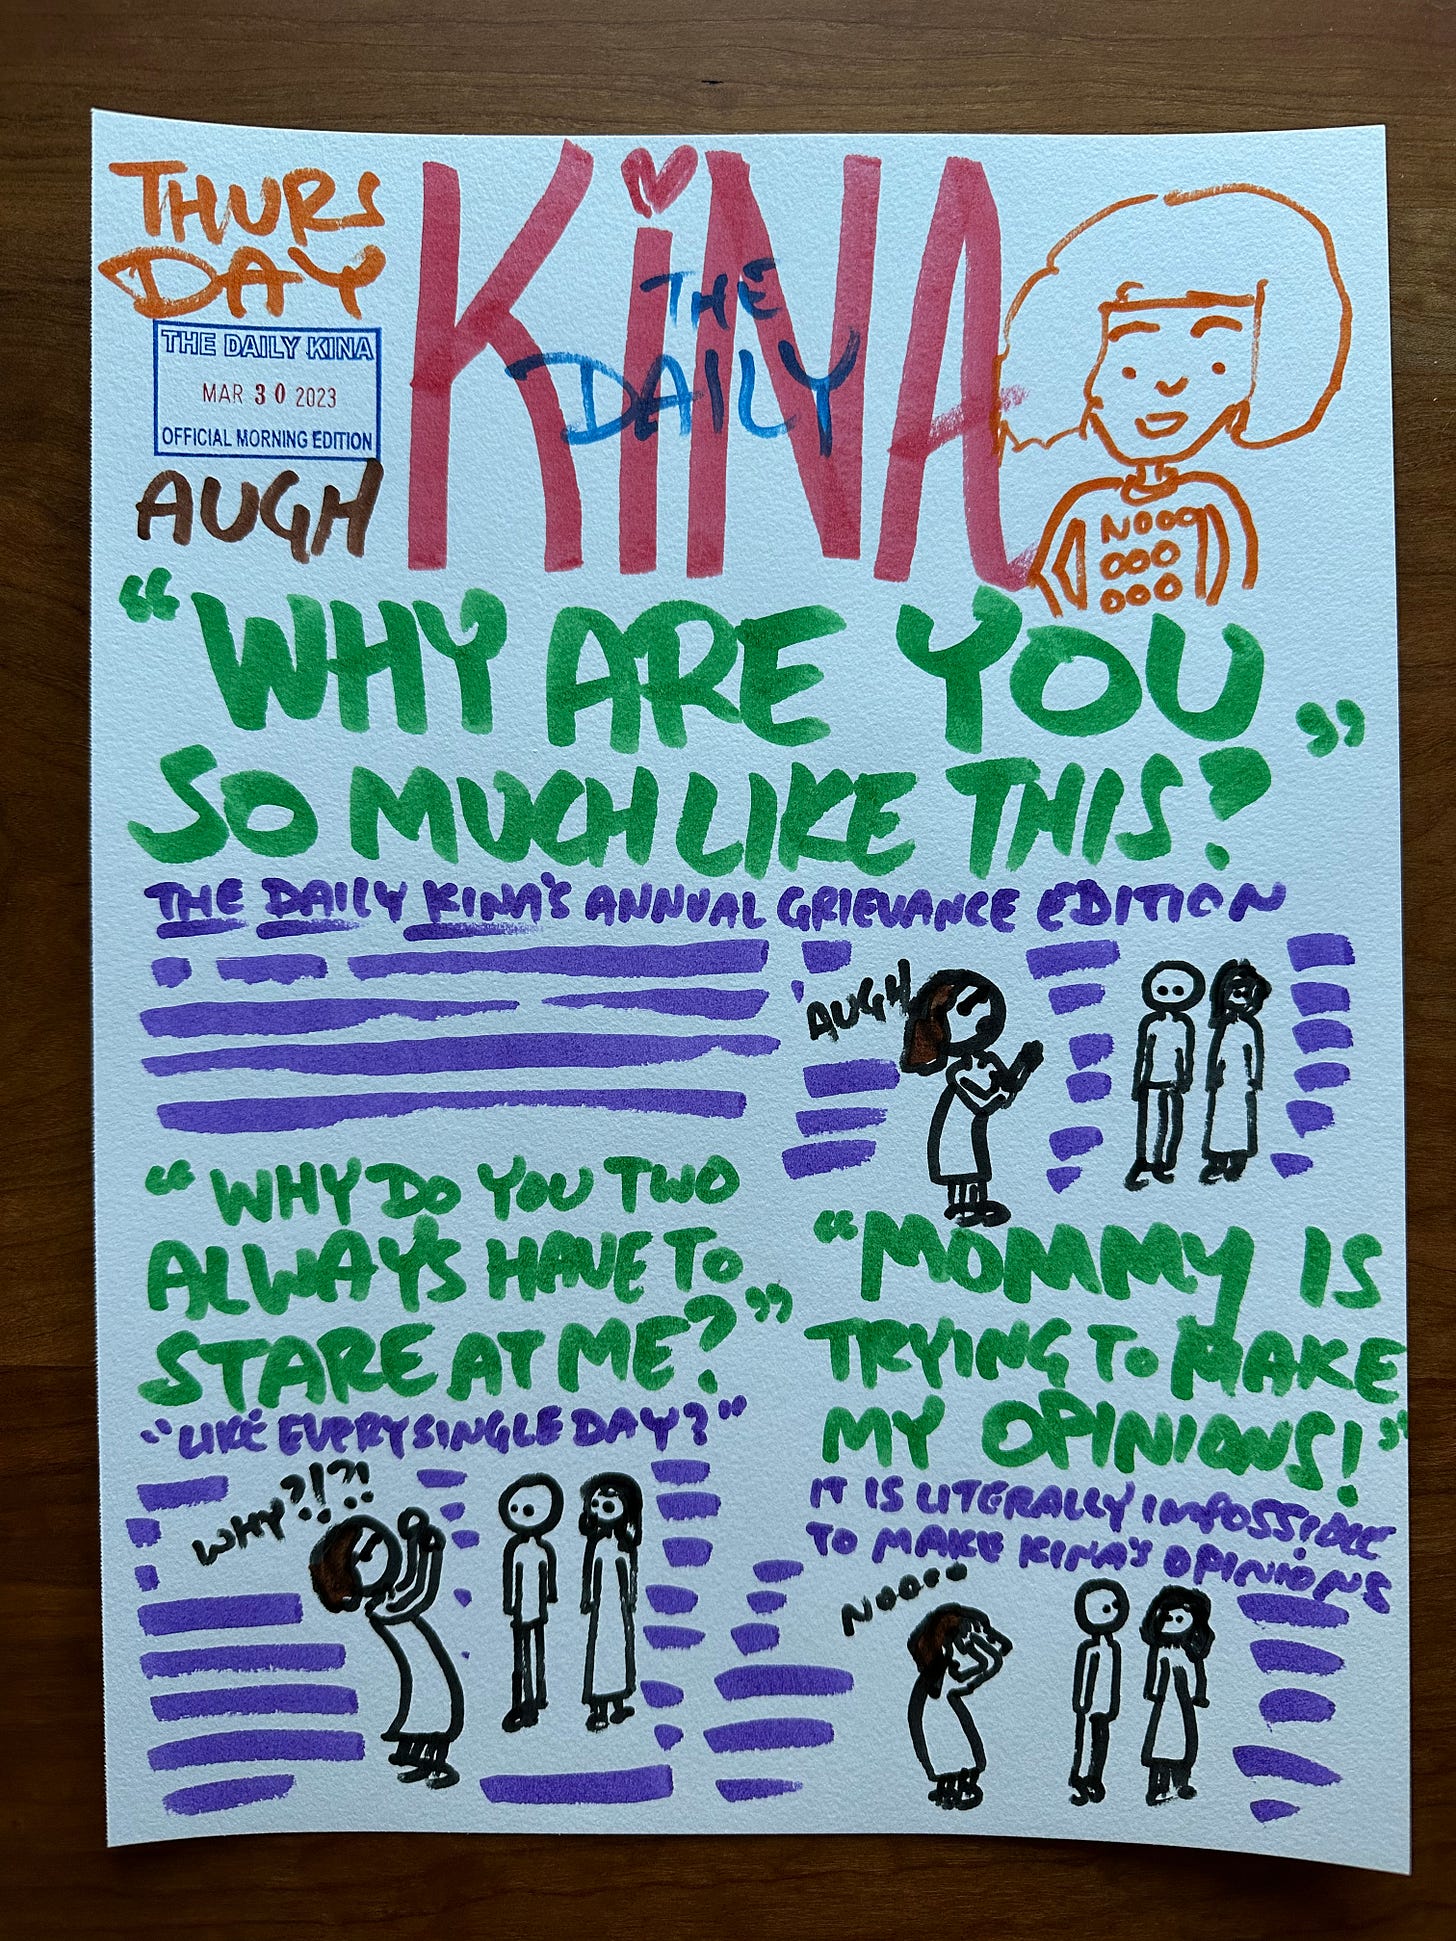 THURS
DAY
THE DAILY KINA
MAR 30 2023
OFFICIAL MORNING EDITION
AUGH
KiNA
THE
DAILY
NOOO
OOO
OOO
"WHY ARE YOU
SO MUCH LIKE THIS?"
THE DAILY KINA'S ANNUAL GRIEVANCE EDITION
AUGH
"WHY DO YOU TWO
ALWAYS HAVE TO
STARE AT ME?"
"LIKE EVERY SINGLE DAY?"
WHY?!?!
"MOMMY IS
TRYING TO MAKE
MY OPINIONS!"
IT IS LITERALLY IMPOSSIBLE
TO MAKE KINA'S OPINIONS
NOOOO